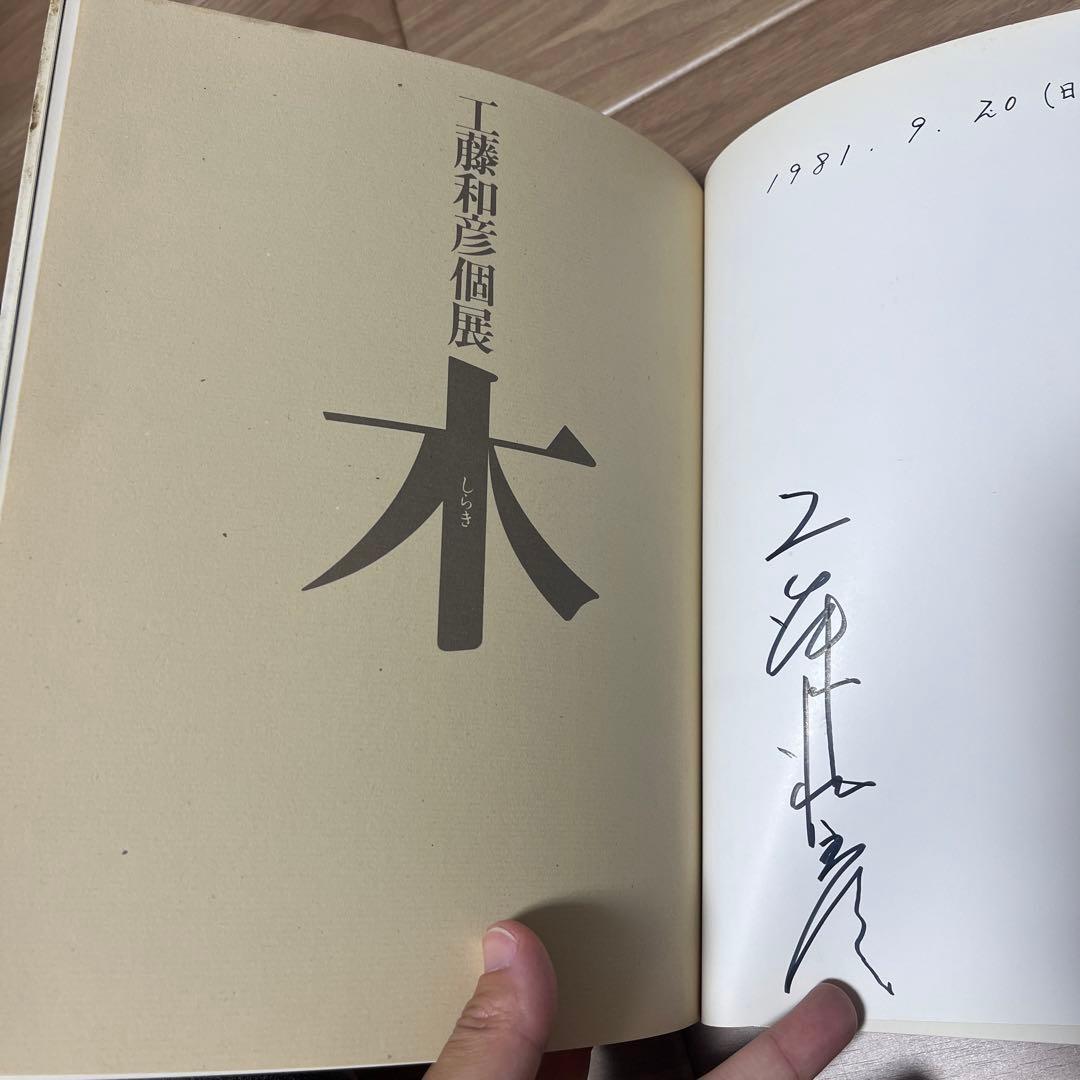 工藤和彦個展
木
しらき
1981. 9. 20 (日
工藤和彦